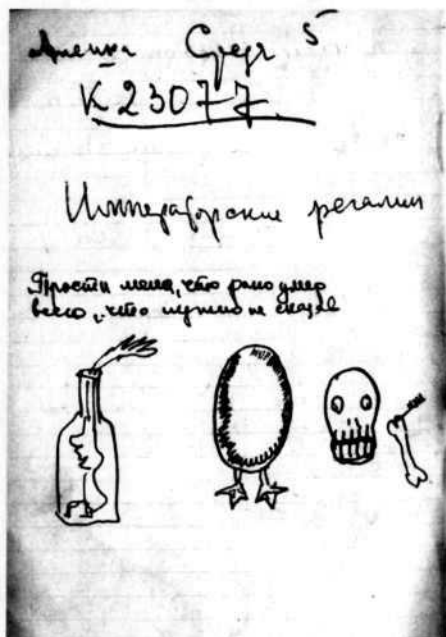 Среда 5
К 23077
Императорские регалии
Прости меня, что рано умер
всего, что нужно не сказал